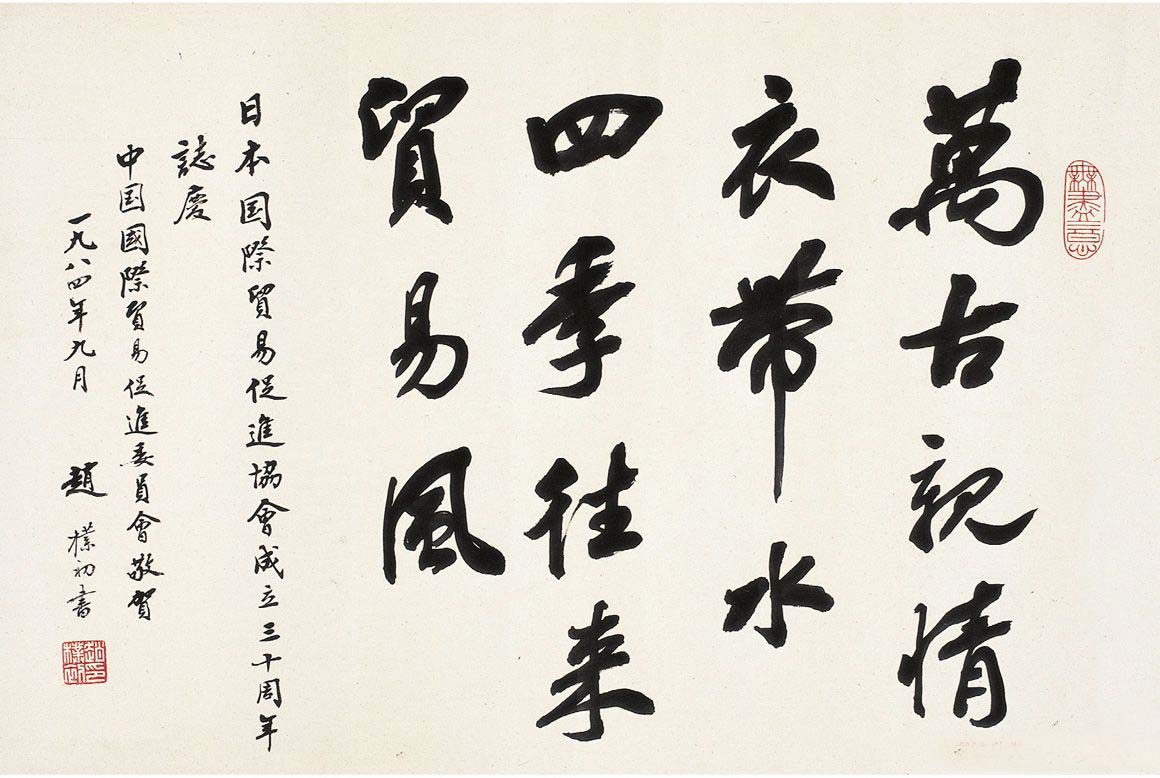 萬古親情
衣帶水
四季往来
貿易風
日本国際貿易促進協會成立三十周年
誌慶
中国國際貿易促進委員會敬賀
一九八四年九月 趙樸初書
無盡意
趙樸初